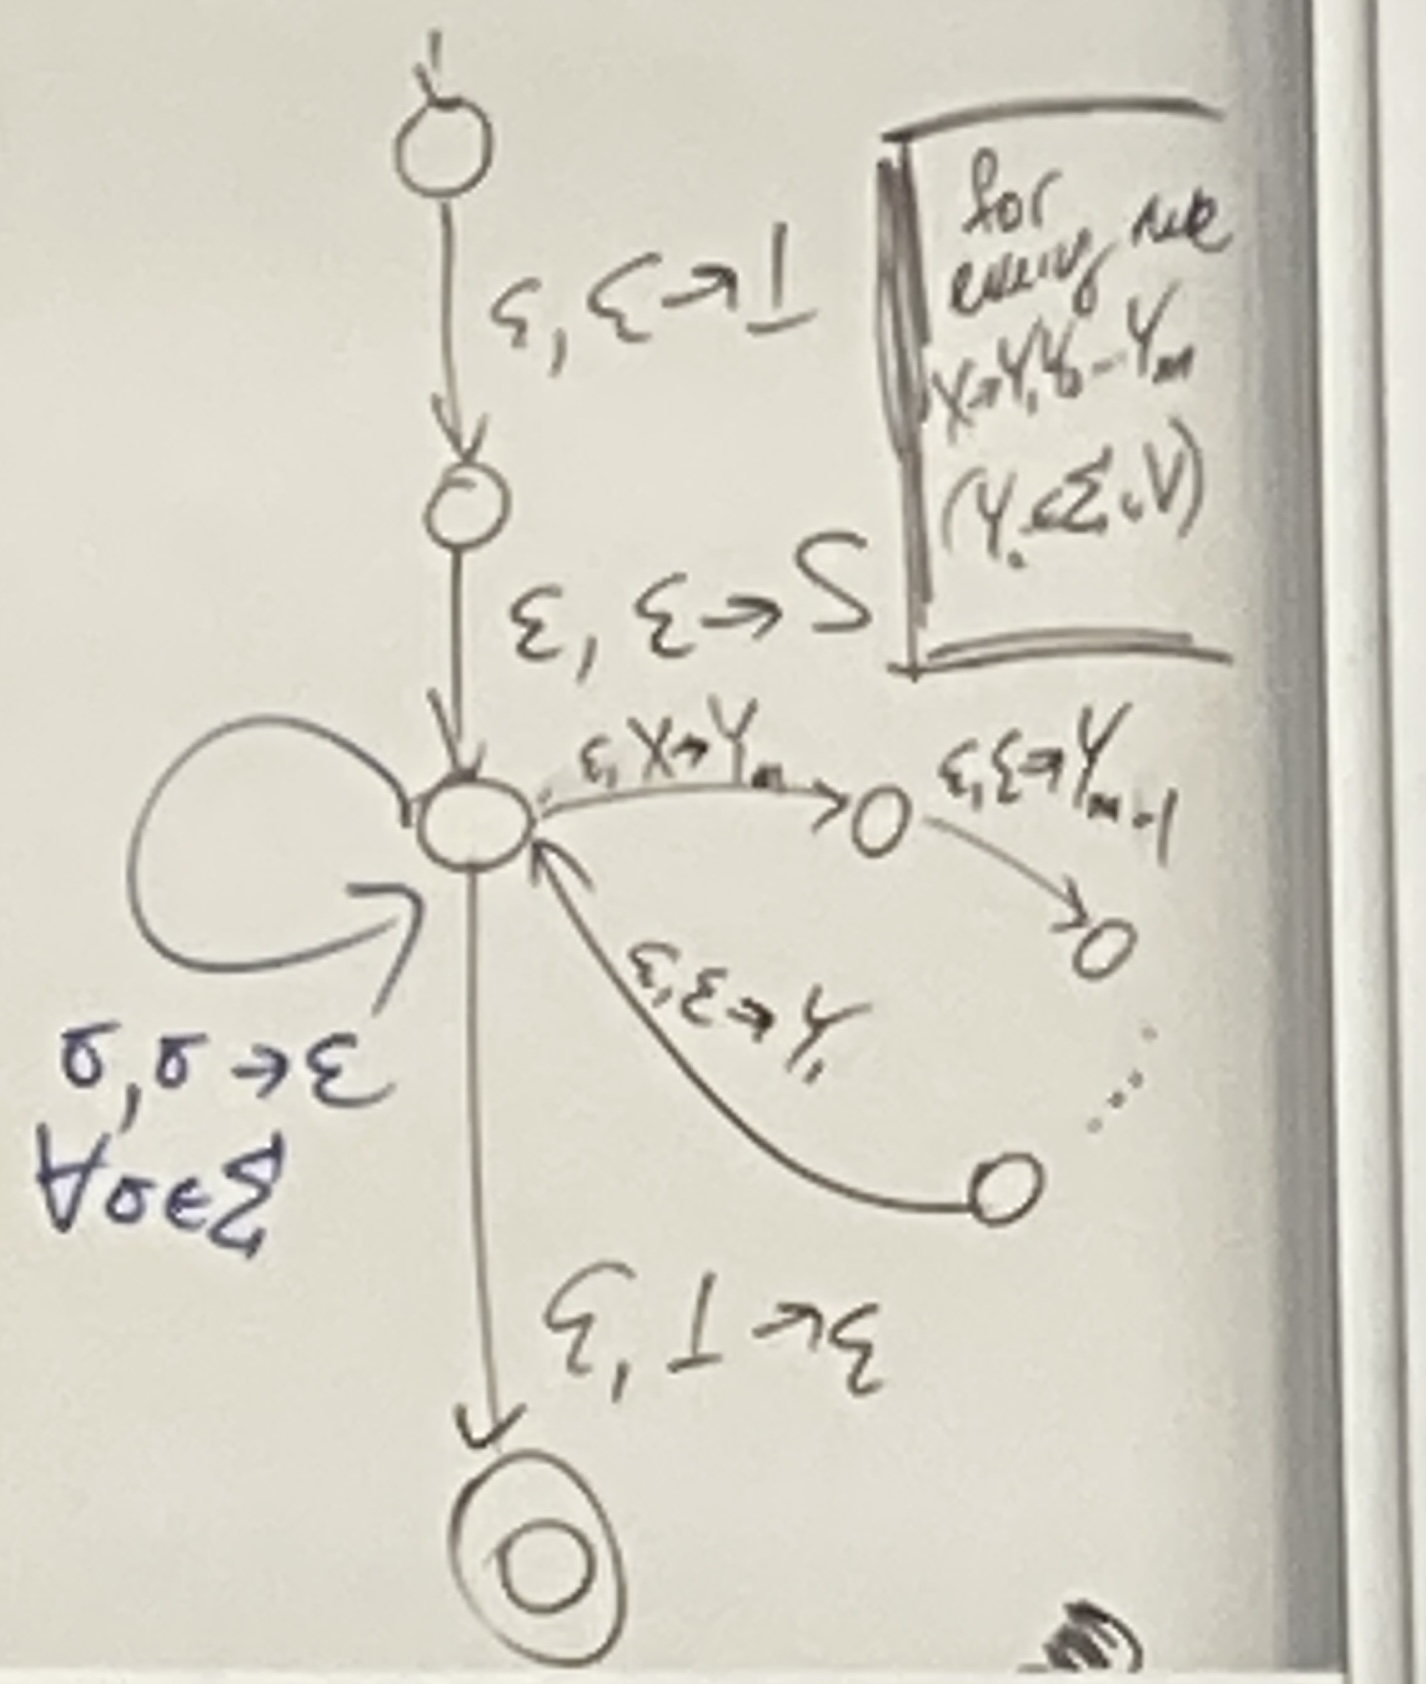 ε, ε→⊥
for
every rule
X→Y₁Y₂--Yₘ
(Yᵢ∈Σ∪V)
ε, ε→S
ε, X→Yₘ
ε, ε→Yₘ₋₁
ε, ε→Y₁
σ, σ→ε
∀σ∈Σ
ε, ⊥→ε